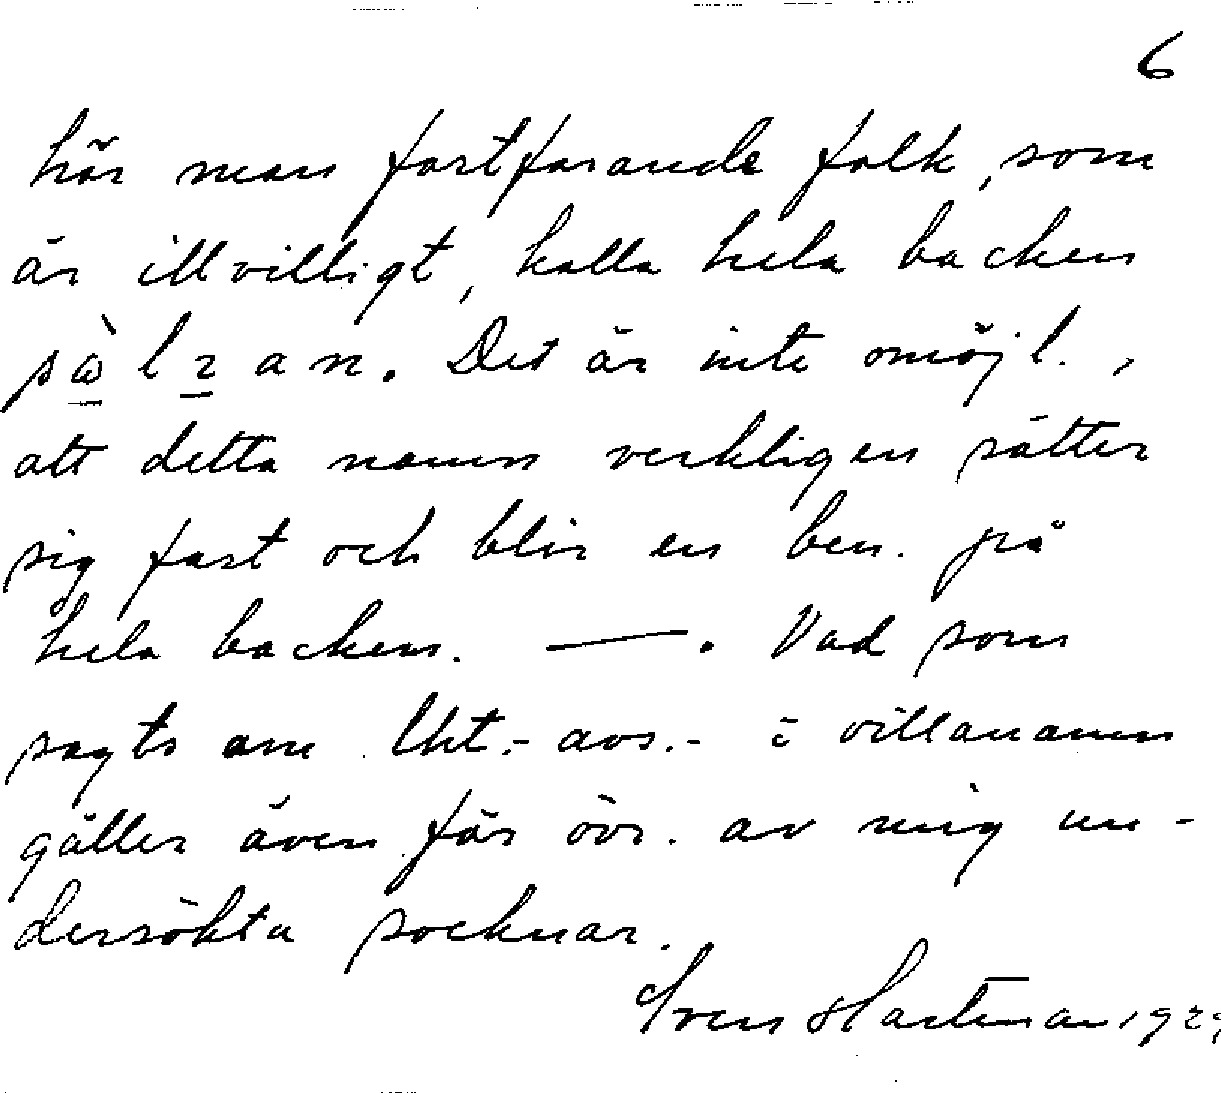 6
hör man fortfarande folk, som
är illvilligt, kalla hela backen
Det är inte omöjl.,
att detta namn verkligen sätter
sig fast och blir en ben. på
hela backen. —. Vad som
sagts om Utt.- avs.- i villanamn
gäller även för övr. av mig un-
dersökta socknar.
Sven Hartman 192